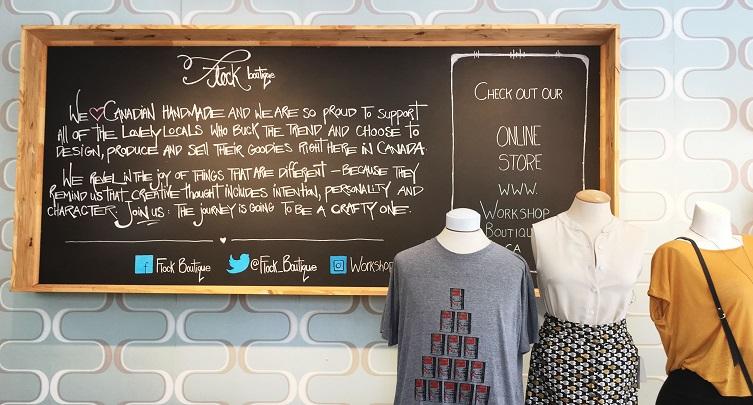 Flock boutique
WE ♡ CANADIAN HANDMADE AND WE ARE SO PROUD TO SUPPORT
ALL OF THE LOVELY LOCALS WHO BUCK THE TREND AND CHOOSE TO
DESIGN, PRODUCE AND SELL THEIR GOODIES RIGHT HERE IN CANADA.
WE REVEL IN THE JOY OF THINGS THAT ARE DIFFERENT - BECAUSE THEY
REMIND US THAT CREATIVE THOUGHT INCLUDES INTENTION, PERSONALITY AND
CHARACTER. JOIN US: THE JOURNEY IS GOING TO BE A CRAFTY ONE.
f Flock Boutique @Flock_Boutique Workshop
CHECK OUT OUR
ONLINE
STORE
WWW.
WORKSHOP
BOUTIQUE
CA